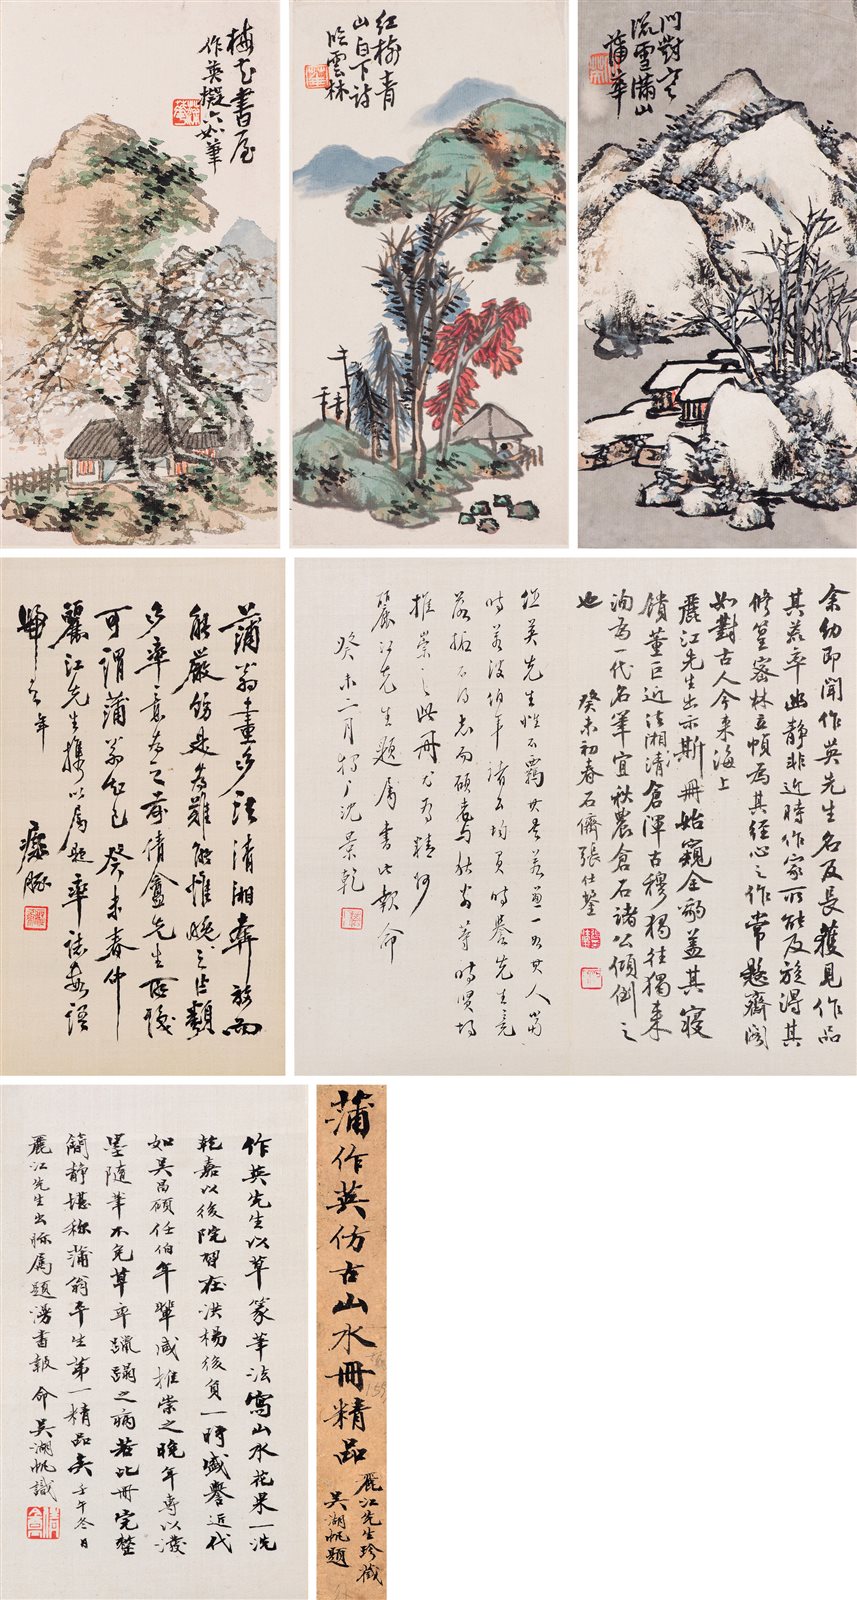 梅花書屋
作英擬六如筆
紅樹青
山白下詩
臨雲林
門對寒
流雪滿山
蒲華
余幼即聞作英先生名及長獲見作品
其蒼率幽靜非近時作家所能及旋得其
修篁密林立幀為其經心之作常懸齋閣
如對古人今來海上
麗江先生出示斯冊始窺全豹蓋其寢
饋董巨近法湘清倉渾古穆獨往獨來
洵為一代名筆宜秋農倉石諸公傾倒之
也
癸未初春石儕張仕
作英先生性不羈其畫一如其人當
時若波伯年諸公均負時譽先生竟
落拓不得志而時賢均
推崇之此冊尤為精妙
麗江先生題屬書此報命
癸未二月沈景乾
蒲翁畫多法清湘奔放而
能嚴飭是為難能惟晚
多率意為之前倩盦先生所識
可謂蒲翁知己癸未春仲
麗江先生攜以屬題率誌數語
歸之
作英先生以草篆筆法寫山水花果一洗
乾嘉以後院習在洪楊後負一時盛譽近代
如吳昌碩任伯年輩咸推崇之晚年專以潑
墨隨筆不免草率躐蹋之病若此冊完整
簡靜堪称蒲翁平生第一精品矣壬午冬日
麗江先生出眎屬題漫書報命吳湖帆識
蒲作英仿古山水冊精品
麗江先生珍藏
吳湖帆題